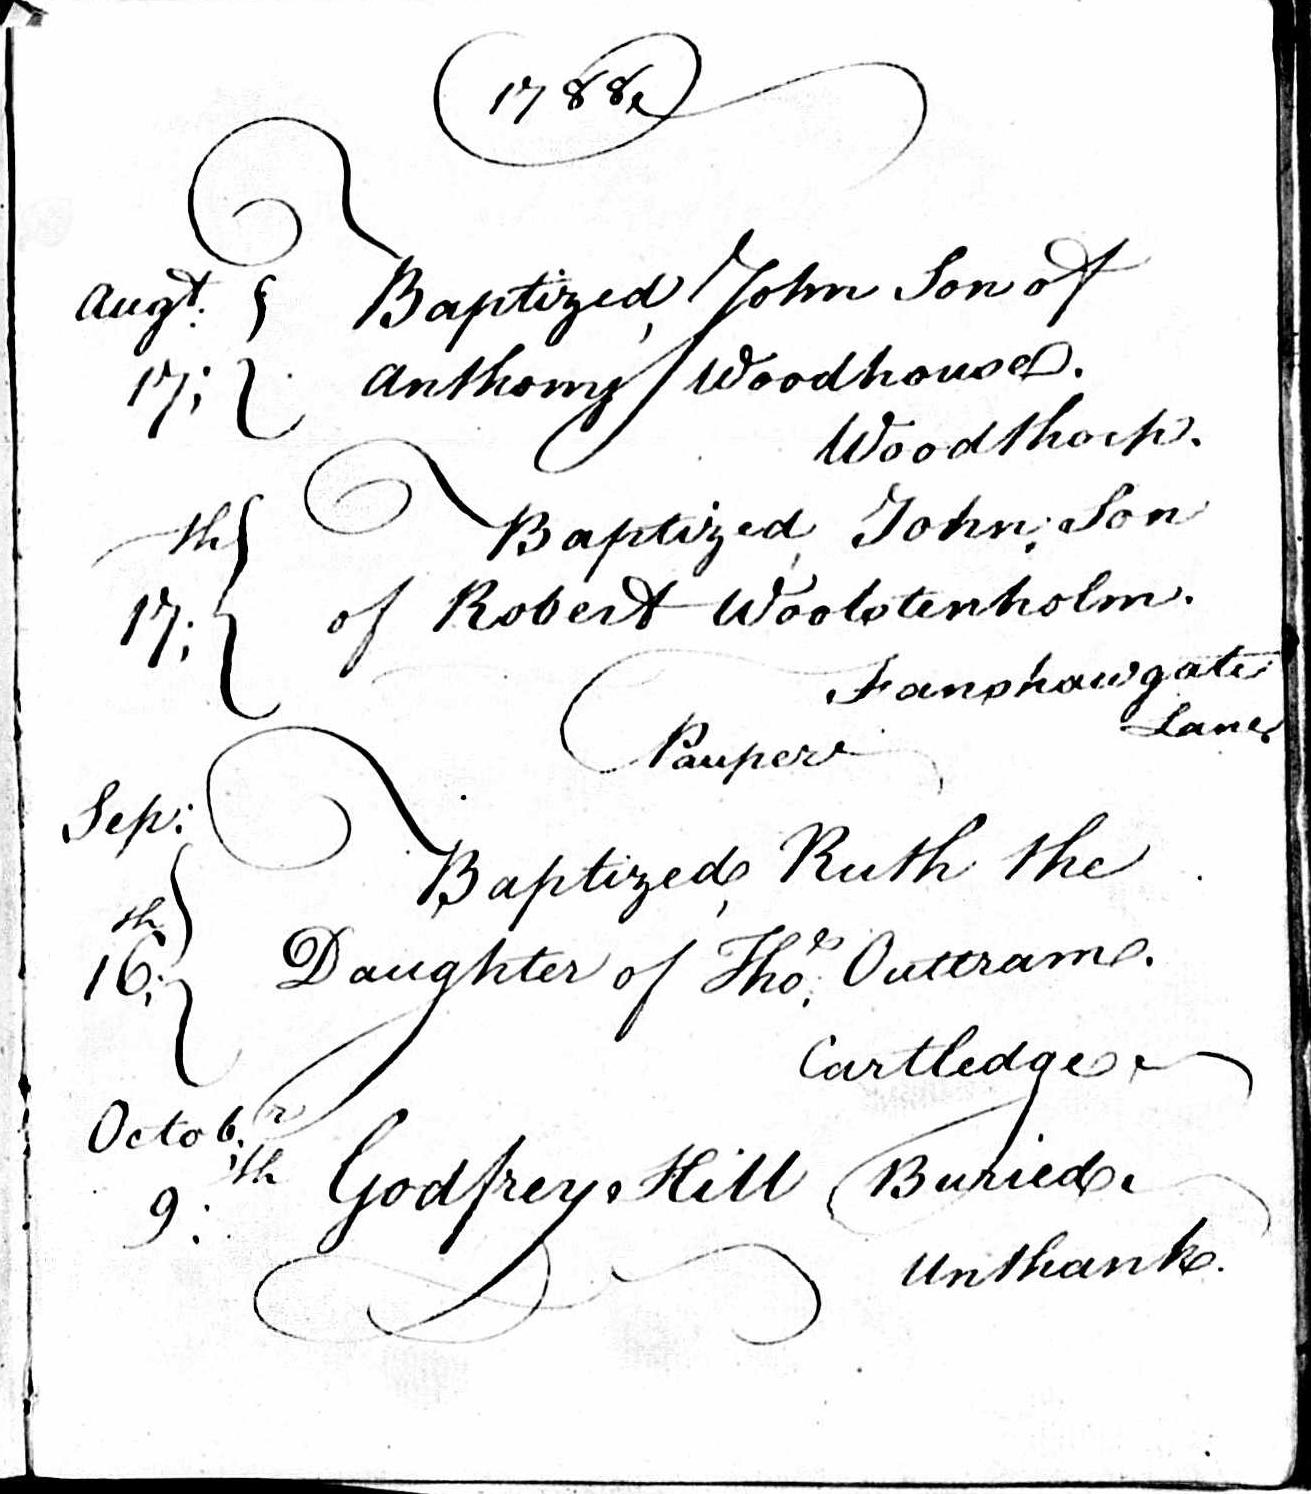 1788
Augt. Baptized, John Son of
17; Anthony Woodhouse.
Woodthorp.
th Baptized, John, Son
17; of Robert Woolstenholm.
Fanshawgate
Lane.
Pauper
Sep:
Baptized, Ruth the
th
16; Daughter of Thos. Outtram.
Cartledge
Octobr.
9th: Godfrey Hill Buried.
Unthank.